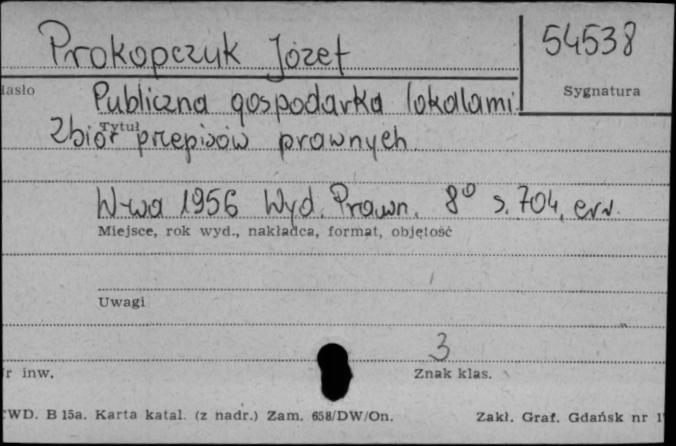 Prokopczuk Józef 54538
Hasło Sygnatura
Publiczna gospodarka lokalami.
Tytuł
Zbiór przepisów prawnych
W-wa 1956 Wyd. Prawn. 8° s. 704,
Miejsce, rok wyd., nakładca, format, objętość
Uwagi
3
r inw. Znak klas.
WD. B 15a. Karta katal. (z nadr.) Zam. 658/DW/On. Zakł. Graf. Gdańsk nr 1